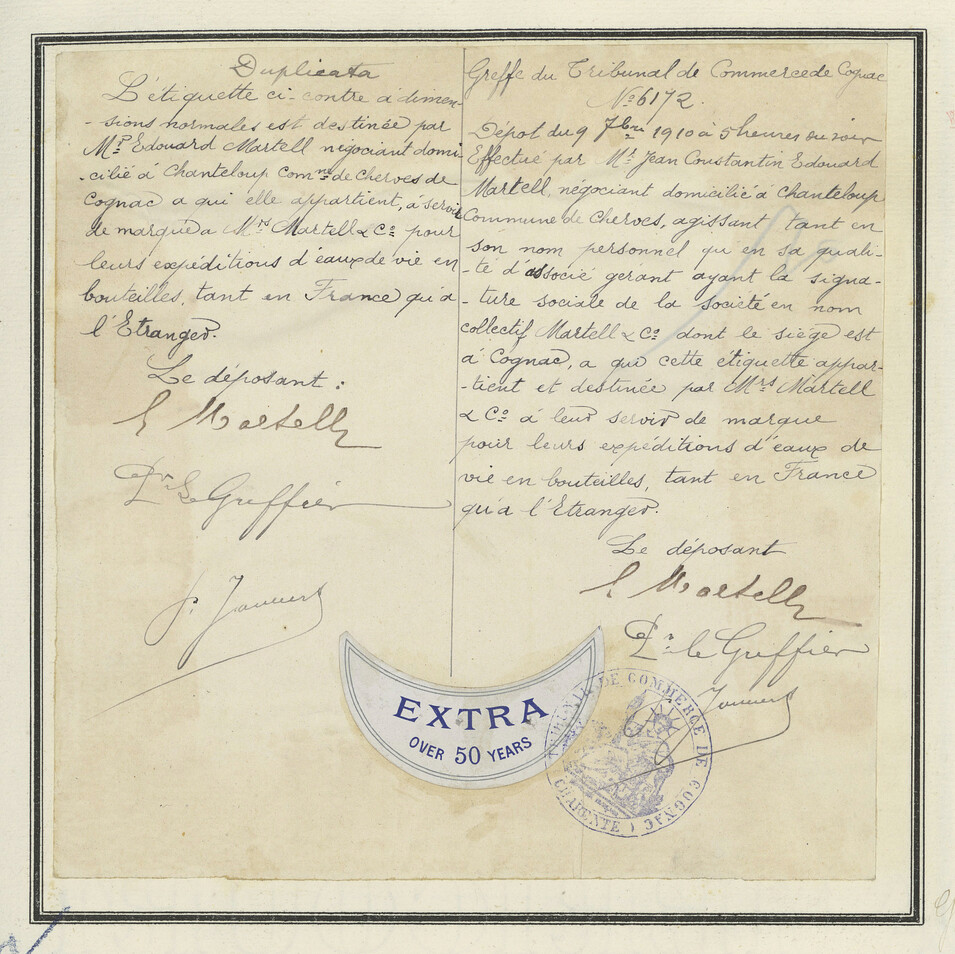 Duplicata
L'étiquette ci-contre à dimen-
-sions normales est destinée par
Mr. Edouard Martell négociant domi-
-cilié à Chanteloup Comne de Cherves de
Cognac a qui elle appartient, à servir
de marque a Mrs Martell & Co pour
leurs expéditions d'eaux de vie en
bouteilles, tant en France qu'à
l'Etranger.
Le déposant :
E Martell
Pr Le Greffier
Greffe du Tribunal de Commerce de Cognac
No 6172.
Dépot du 9 7bre 1910 à 5 heures du soir
Effectué par Mr. Jean Constantin Edouard
Martell, négociant domicilié à Chanteloup
Commune de Cherves, agissant tant en
son nom personnel qu'en sa quali-
-té d'associé gerant ayant la signa-
-ture sociale de la societé en nom
collectif Martell & Co dont le siège est
à Cognac, a qui cette étiquette appar-
-tient et destinée par Mrs Martell
& Co à leur servir de marque
pour leurs expéditions d'eaux de
vie en bouteilles, tant en France
qu'à l'Etranger.
Le déposant
E Martell
Pr le Greffier
EXTRA
OVER 50 YEARS
TRIBUNAL DE COMMERCE DE COGNAC
(CHARENTE)